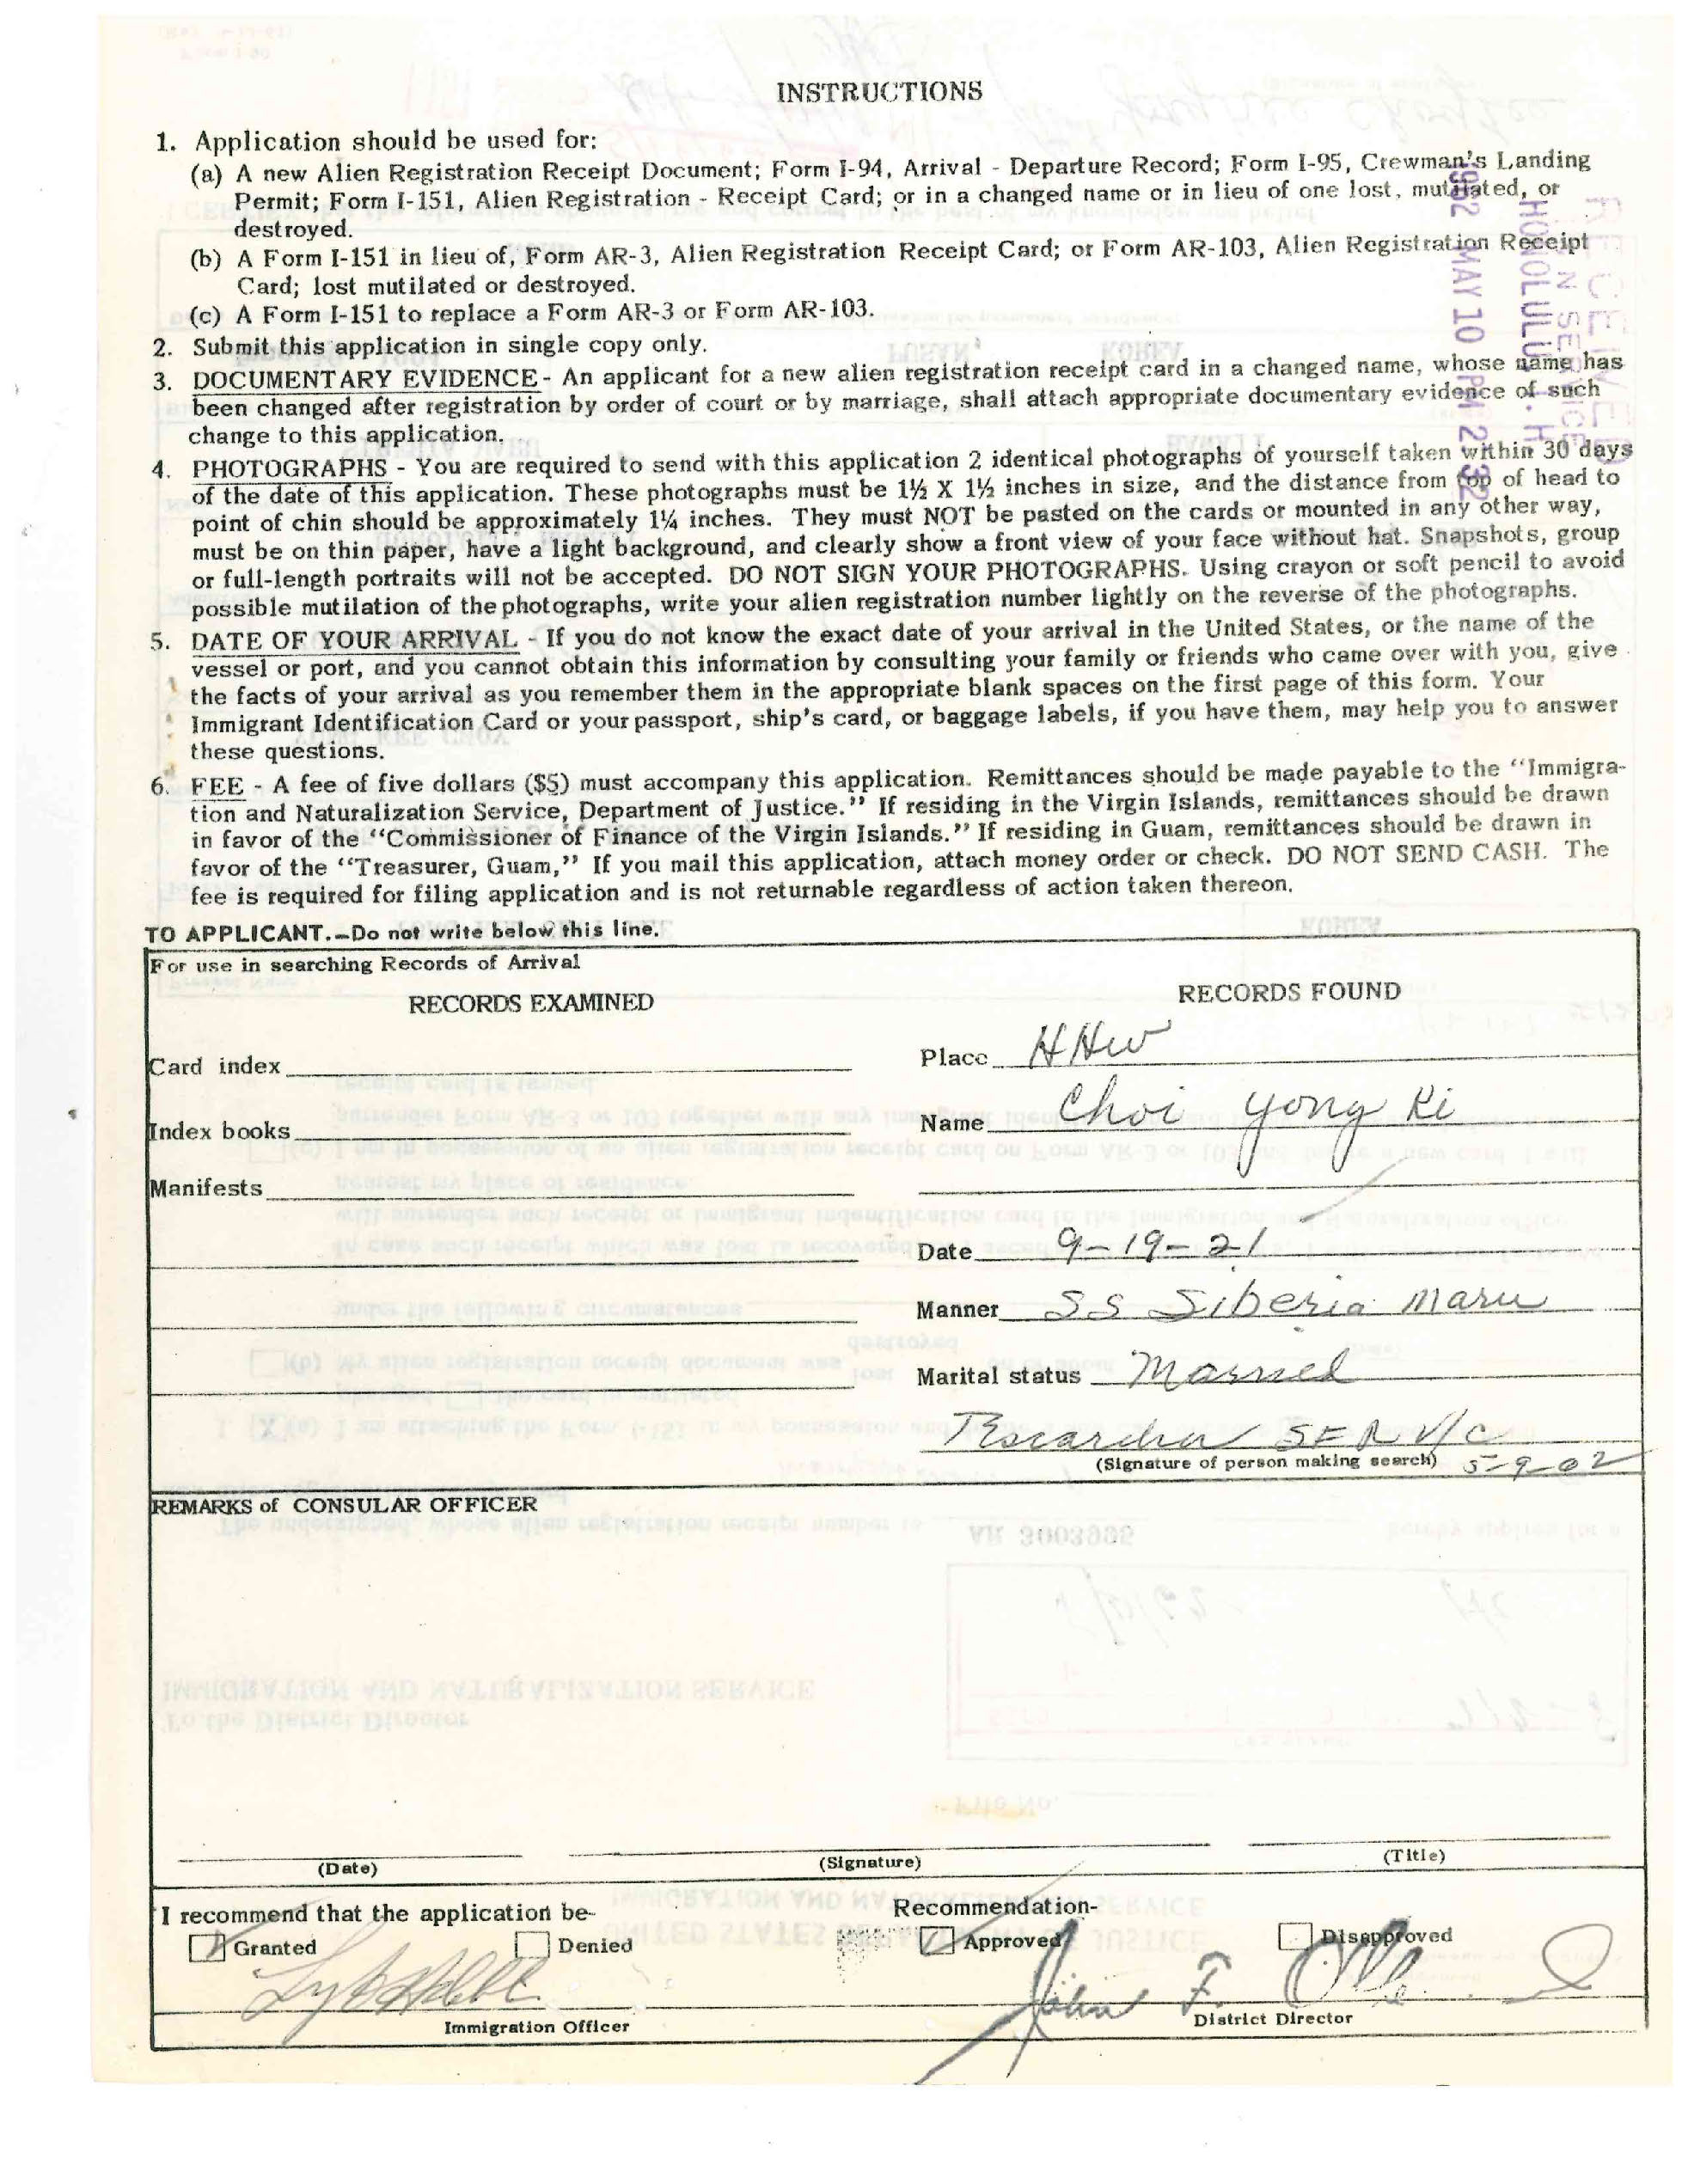 INSTRUCTIONS
1. Application should be used for:
(a) A new Alien Registration Receipt Document; Form I-94, Arrival - Departure Record; Form I-95, Crewman's Landing
Permit; Form I-151, Alien Registration - Receipt Card; or in a changed name or in lieu of one lost, mutilated, or
destroyed.
(b) A Form I-151 in lieu of, Form AR-3, Alien Registration Receipt Card; or Form AR-103, Alien Registration Receipt
Card; lost mutilated or destroyed.
(c) A Form I-151 to replace a Form AR-3 or Form AR-103.
2. Submit this application in single copy only.
3. DOCUMENTARY EVIDENCE - An applicant for a new alien registration receipt card in a changed name, whose name has
been changed after registration by order of court or by marriage, shall attach appropriate documentary evidence of such
change to this application.
4. PHOTOGRAPHS - You are required to send with this application 2 identical photographs of yourself taken within 30 days
of the date of this application. These photographs must be 1½ X 1½ inches in size, and the distance from top of head to
point of chin should be approximately 1¼ inches. They must NOT be pasted on the cards or mounted in any other way,
must be on thin paper, have a light background, and clearly show a front view of your face without hat. Snapshots, group
or full-length portraits will not be accepted. DO NOT SIGN YOUR PHOTOGRAPHS. Using crayon or soft pencil to avoid
possible mutilation of the photographs, write your alien registration number lightly on the reverse of the photographs.
5. DATE OF YOUR ARRIVAL - If you do not know the exact date of your arrival in the United States, or the name of the
vessel or port, and you cannot obtain this information by consulting your family or friends who came over with you, give
the facts of your arrival as you remember them in the appropriate blank spaces on the first page of this form. Your
Immigrant Identification Card or your passport, ship's card, or baggage labels, if you have them, may help you to answer
these questions.
6. FEE - A fee of five dollars ($5) must accompany this application. Remittances should be made payable to the "Immigra-
tion and Naturalization Service, Department of Justice." If residing in the Virgin Islands, remittances should be drawn
in favor of the "Commissioner of Finance of the Virgin Islands." If residing in Guam, remittances should be drawn in
favor of the "Treasurer, Guam," If you mail this application, attach money order or check. DO NOT SEND CASH. The
fee is required for filing application and is not returnable regardless of action taken thereon.
RECEIVED
HONOLULU, T. H.
1962 MAY 10 PM 2 32
TO APPLICANT.—Do not write below this line.
For use in searching Records of Arrival
RECORDS EXAMINED
RECORDS FOUND
Card index
Place HHW
Index books
Name Choi Yong Ki
Manifests
Date 9-19-21
Manner SS Siberia Maru
Marital status Married
(Signature of person making search) 5-9-62
REMARKS of CONSULAR OFFICER
(Date)
(Signature)
(Title)
I recommend that the application be-
Recommendation-
Granted
Denied
Approved
Disapproved
John F.
Immigration Officer
District Director